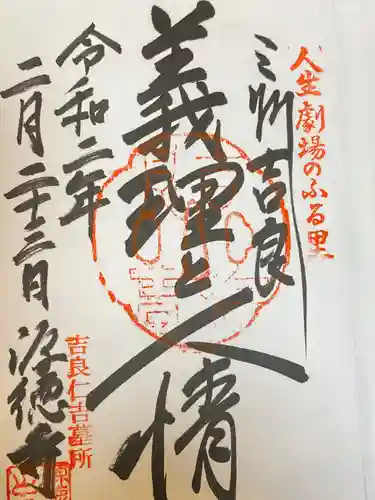 人生劇場のふる里
三州吉良
義理と人情
令和二年
二月二十三日
源徳寺
吉良仁吉墓所